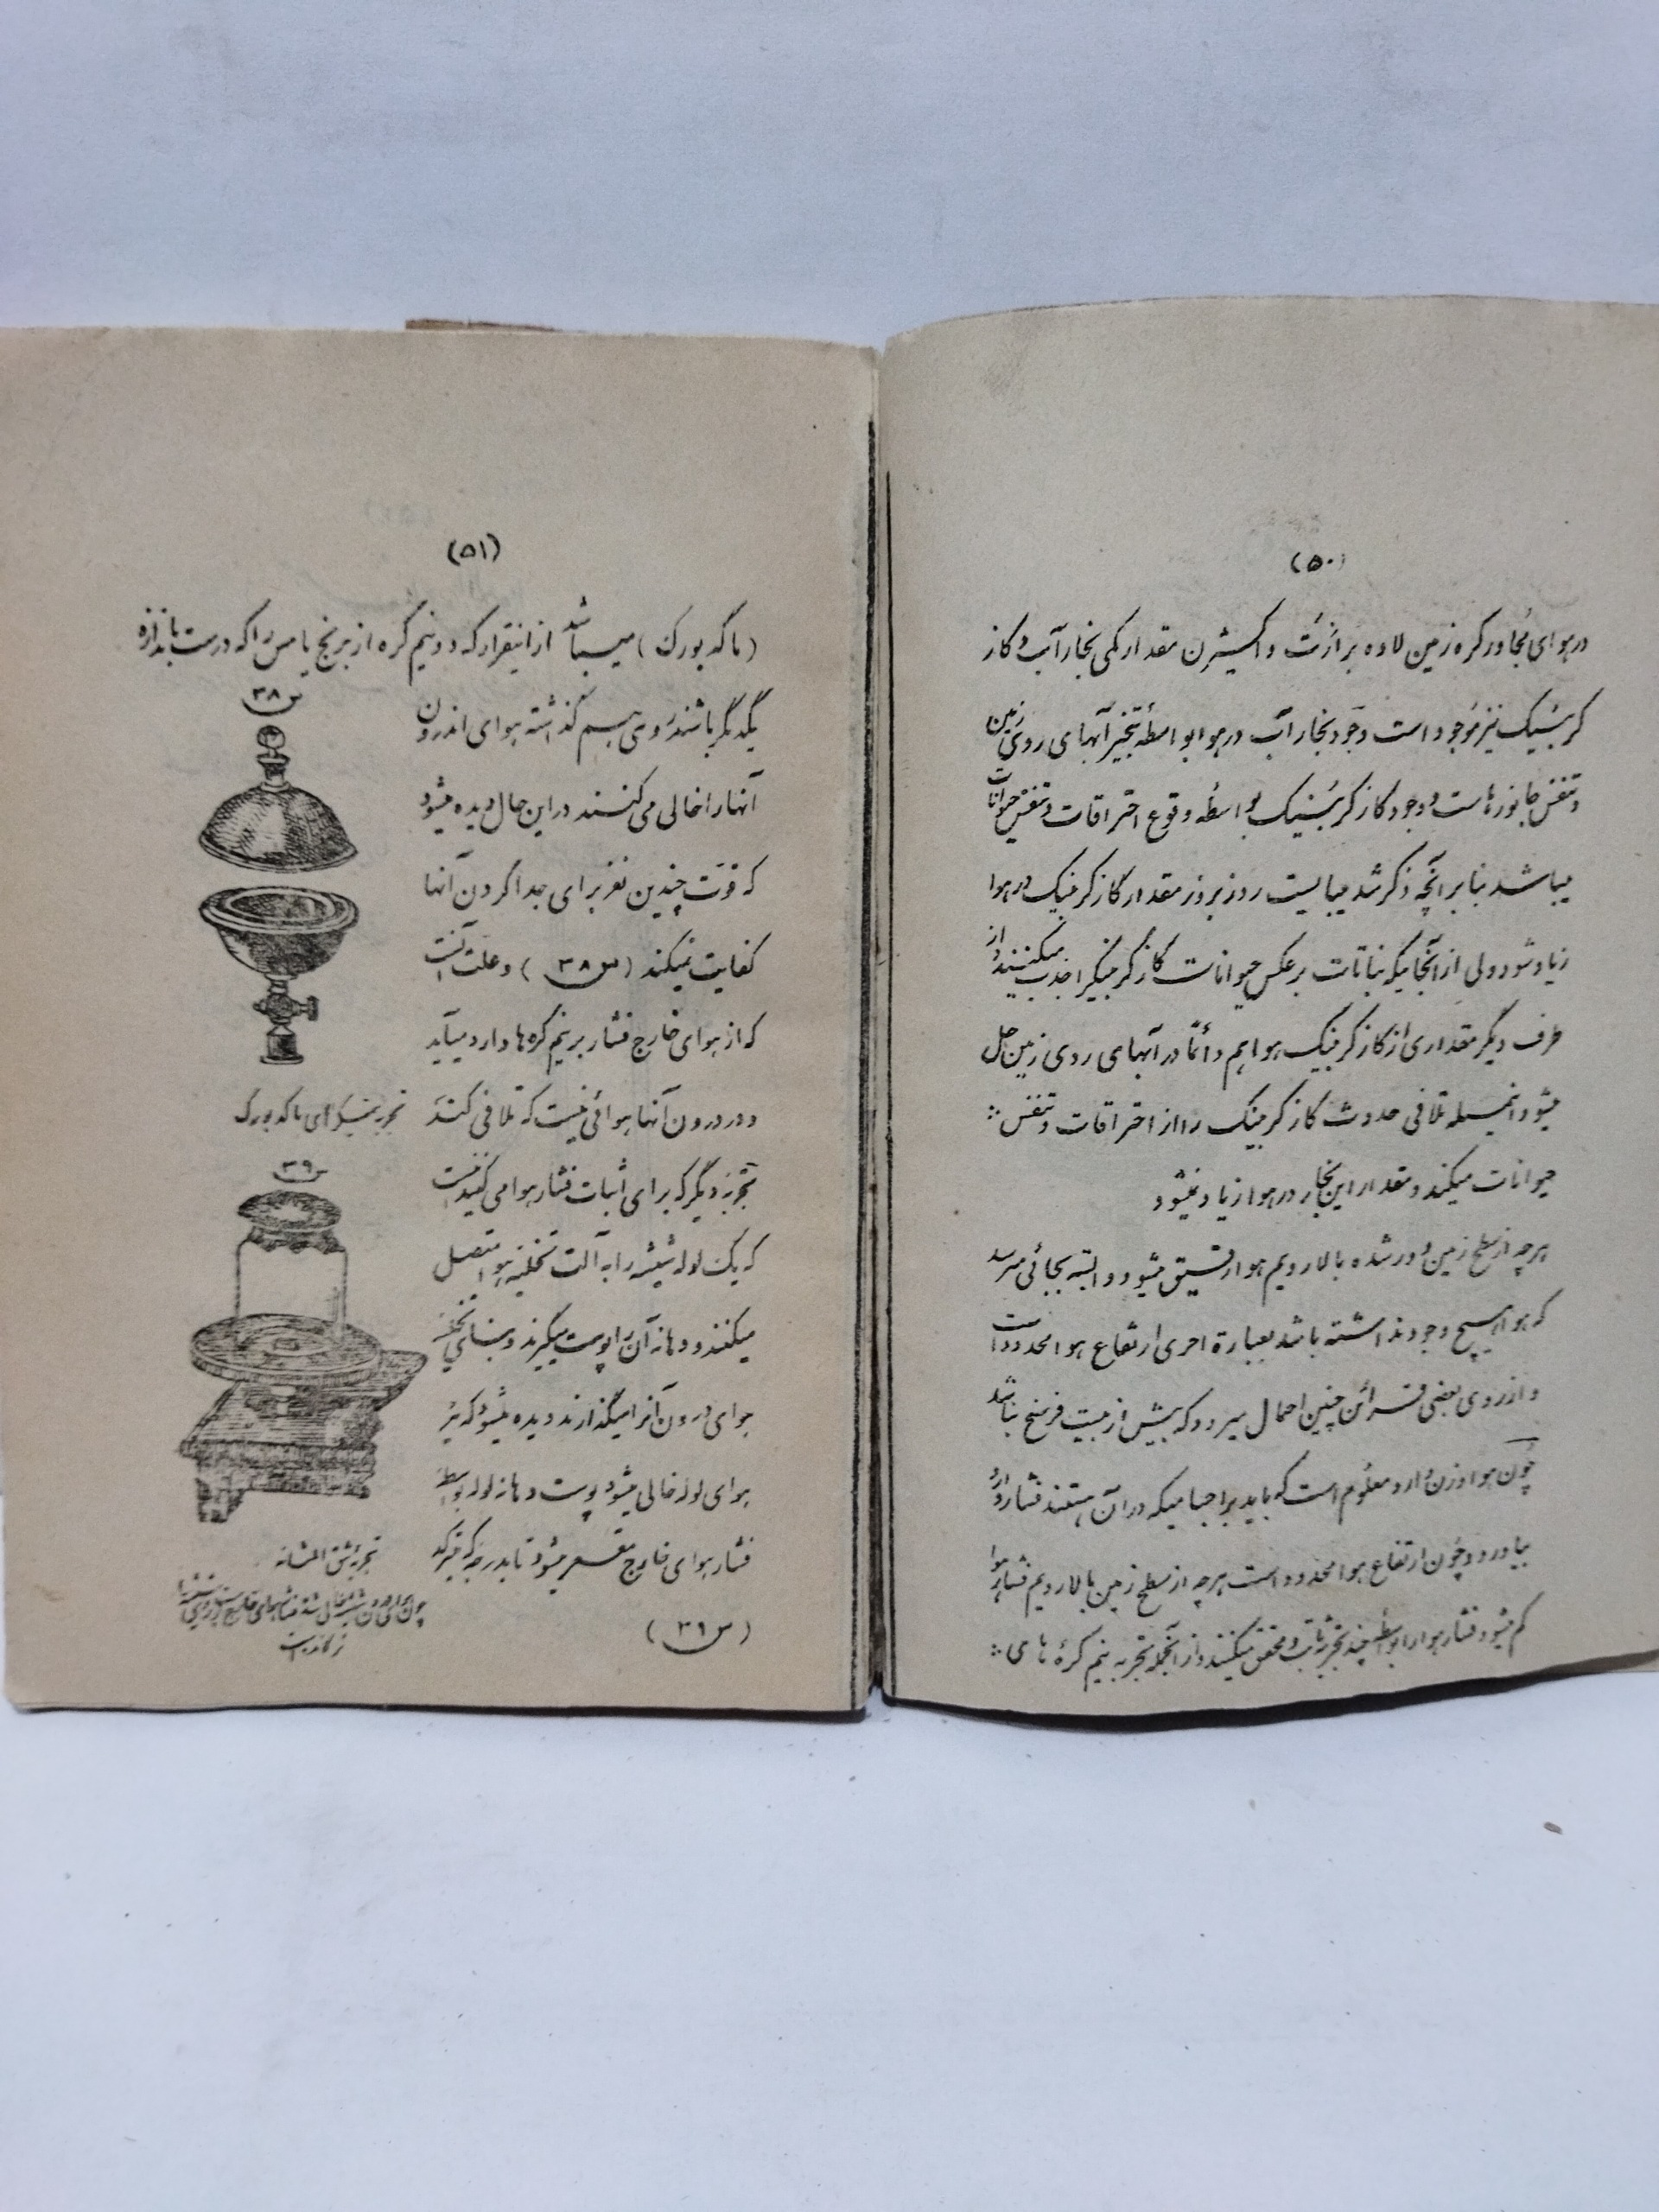 (۵۰)
در هوای مُجاور کره زمین علاوه بر ازُت و اکسیژن مقدار کمی بخار آب و کاز
کربنیک نیز موجود است وجود بخار آب در هوا بواسطهٔ تبخیر آبهای روی زمین
و تنفس جانورهاست و وجود کاز کربنیک بواسطه وقوع احتراقات و تنفس حیوانات
میباشد بنابر آنچه ذکر شد میبایست روز بروز مقدار کاز کربنیک در هوا
زیاد شود ولی از آنجا که نباتات بر عکس حیوانات کاز کربنیک را جذب میکنند و از
طرف دیگر مقداری از کاز کربنیک هوا هم دائمًا در آبهای روی زمین حل
میشود اینمسئله تلافی حدوث کاز کربنیک را از احتراقات و تنفس
حیوانات میکند و مقدار این بخار در هوا زیاد نمیشود
هر چه از سطح زمین دور شده بالا رویم هوا رقیق میشود و البته بجائی میرسد
که هوا هیچ وجود نداشته باشد بعبارة اخری ارتفاع هوا محدود است
و از روی بعضی قرائن چنین احتمال میرود که بیش از بیست فرسخ نباشد
چون هوا وزن دارد معلوم است که باید بر اجسامیکه در آن هستند فشار وارد
بیاورد و چون ارتفاع هوا محدود است هر چه از سطح زمین بالا رویم فشار هوا
کم میشود فشار هوا را بواسطه چند تجربه ثابت و محقق میکنند و از آنجمله تجربه نیم کرهٔ های
(۵۱)
(ماکدبورک) میباشد از اینقرار که دو نیم کره از برنج یا مس را که درست باندازه
یکدیگر باشند روی هم گذاشته هوای اندرون
آنها را خالی می کنند در این حال دیده میشود
که قوّت چندین نفر برای جدا کردن آنها
کفایت نمیکند (س ۳۸) و علت آنست
که از هوای خارج فشار بر نیم کره ها وارد میآید
و در درون آنها هوائی نیست که تلافی کند
تجربهٔ دیگر که برای اثبات فشار هوا می کنند اینست
که یک لوله شیشه را به آلت تخلیه هوا متصل
میکنند و دهانه آن را پوست میگیرند و بنای تخلیه
هوای درون آنرا میگذارند دیده میشود که هر چه
هوای لوله خالی میشود پوست دهانه لوله بواسطه
فشار هوای خارج مقعر میشود تا بدرجه که میترکد
(س ۳۹)
س ۳۸
تجربه نیمکره‌های ماکدبورک
س ۳۹
تجربه شق المثانه